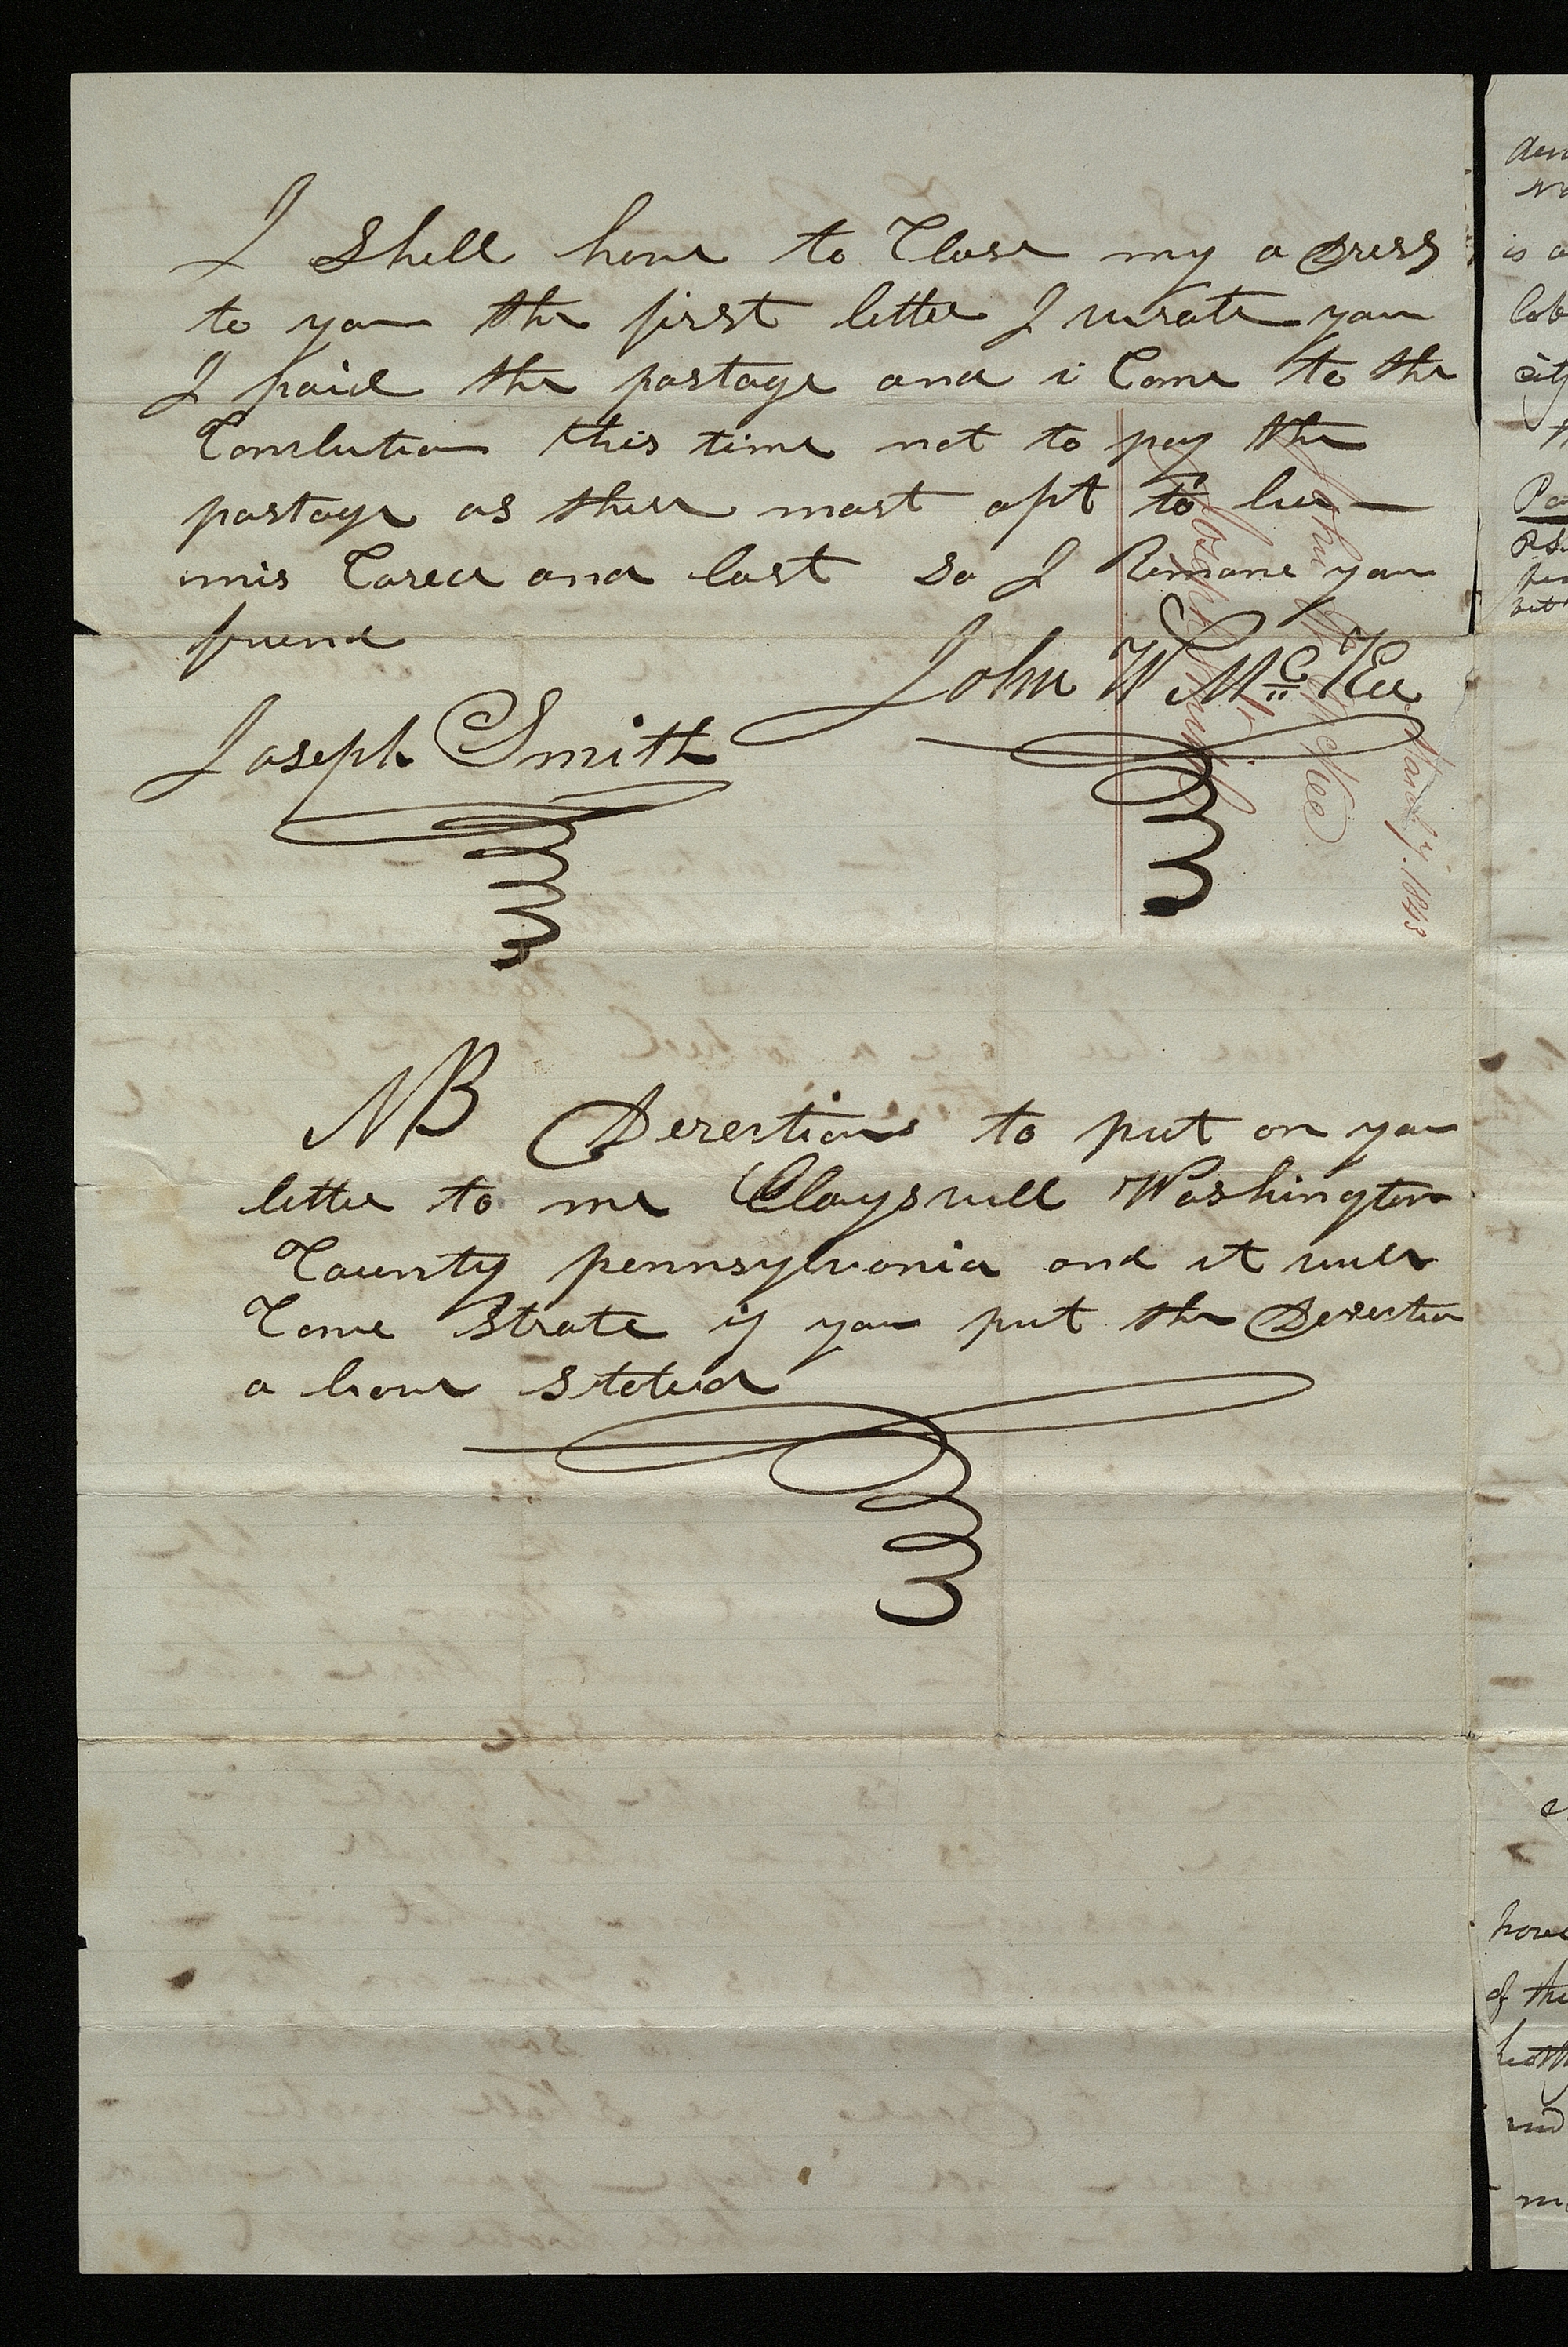 I Shell have to Close my a dress
to you the first letter I wrate you
I paid the postage and i Come to the
Conslution this time not to pay the
postage as thise most apt to be
mis Cared and lost So I Rimane your
friend
John W McKee
Joseph Smith
NB Derections to put on your
letter to me Claysvill Washington
County pennsylvania and it will
Come Strate if you put the Derection
a bove stated
John W McKee
Joseph Smith
1843
is a
city
have
of the